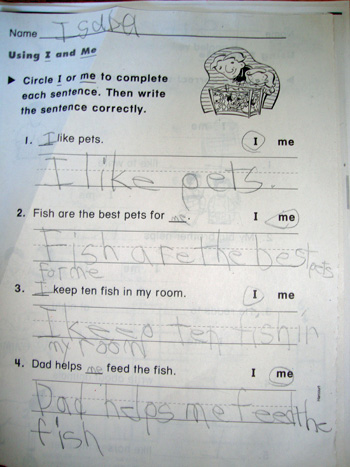 Name Isabel
Using I and Me
▶ Circle I or me to complete
each sentence. Then write
the sentence correctly.
1. I like pets. I me
I like pets.
2. Fish are the best pets for me. I me
Fish are the best pets
for me
3. I keep ten fish in my room. I me
I keep ten fish in
my room
4. Dad helps me feed the fish. I me
Dad helps me feed the
fish